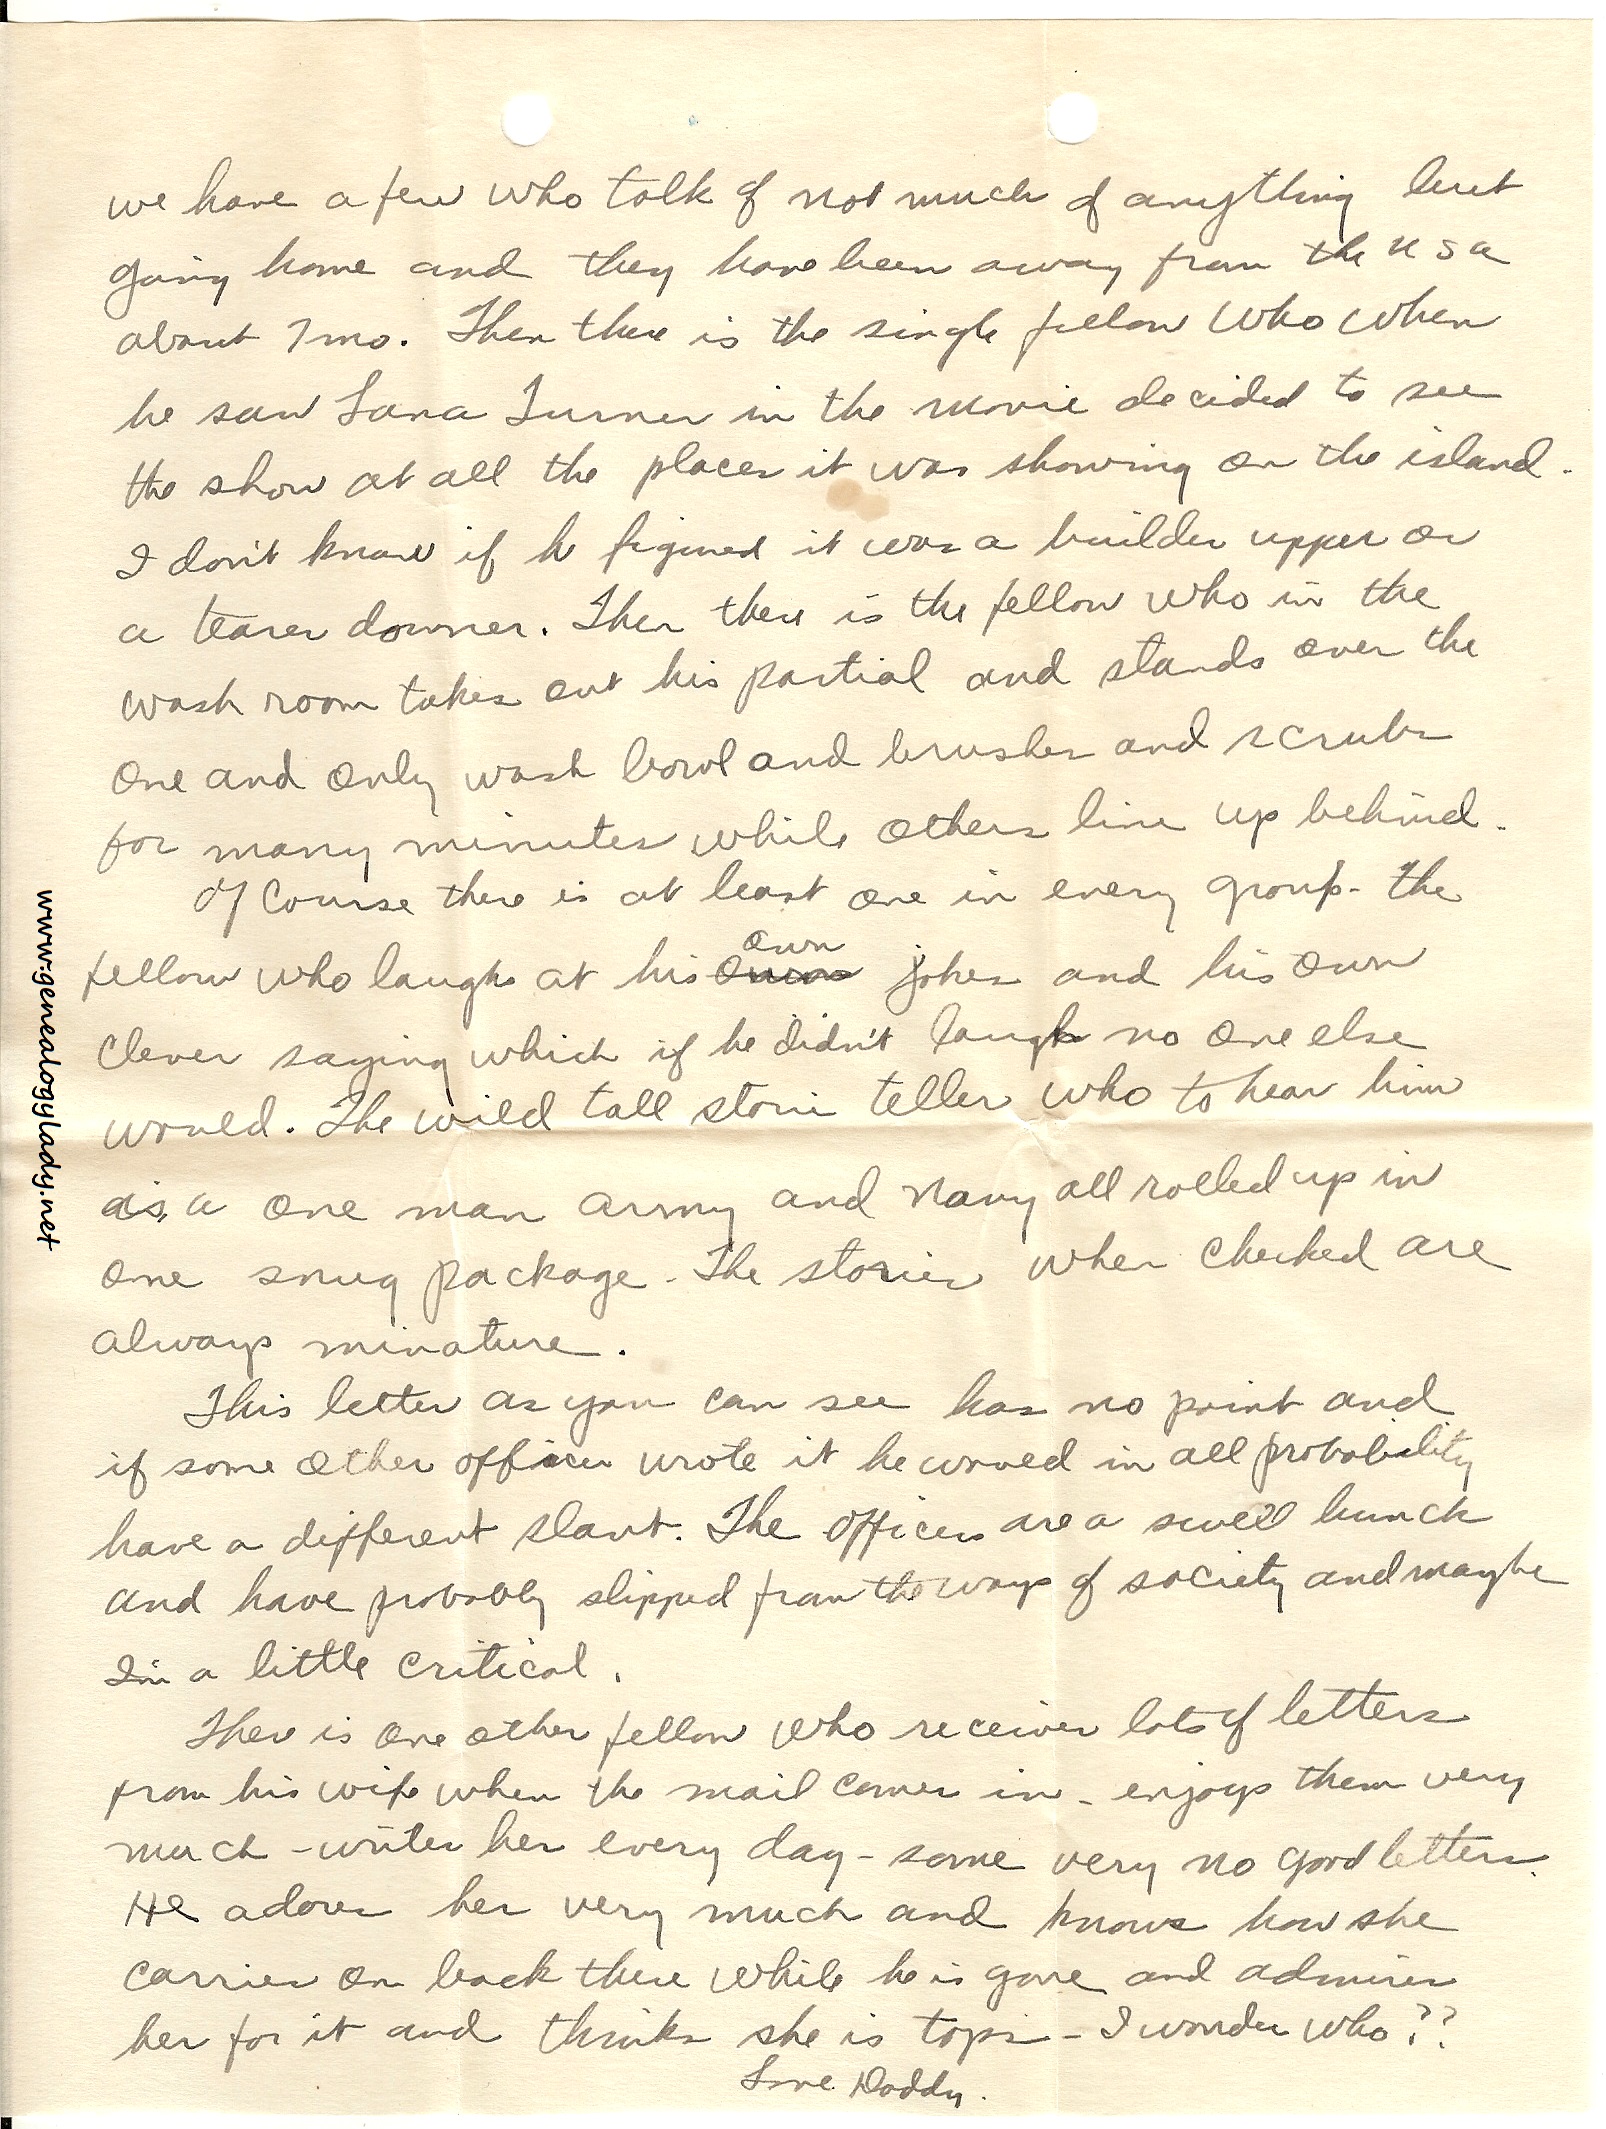 we have a few who talk of not much of anything but
going home and they have been away from the U S A
about 7 mo. Then there is the single fellow who when
he saw Lana Turner in the movie decided to see
the show at all the places it was showing on the island.
I don't know if he figured it was a builder upper or
a tearer downer. Then there is the fellow who in the
wash room takes out his partial and stands over the
one and only wash bowl and brushes and scrubs
for many minutes while others line up behind.
Of course there is at least one in every group - the
own
fellow who laughs at his jokes and his own
clever saying which if he didn't laugh no one else
would. The wild tall storie teller who to hear him
is a one man army and navy all rolled up in
one snug package. The stories when checked are
always minature.
This letter as you can see has no point and
if some other officer wrote it he would in all probability
have a different slant. The officers are a swell bunch
and have probably slipped from the ways of society and maybe
I'm a little critical.
Ther is one other fellow who receives lots of letters
from his wife when the mail comes in - enjoys them very
much - writes her every day - some very no good letters.
He adores her very much and knows how she
carries on back there while he is gone and admires
her for it and thinks she is tops - I wonder who??
Love Daddy.
www.genealogylady.net